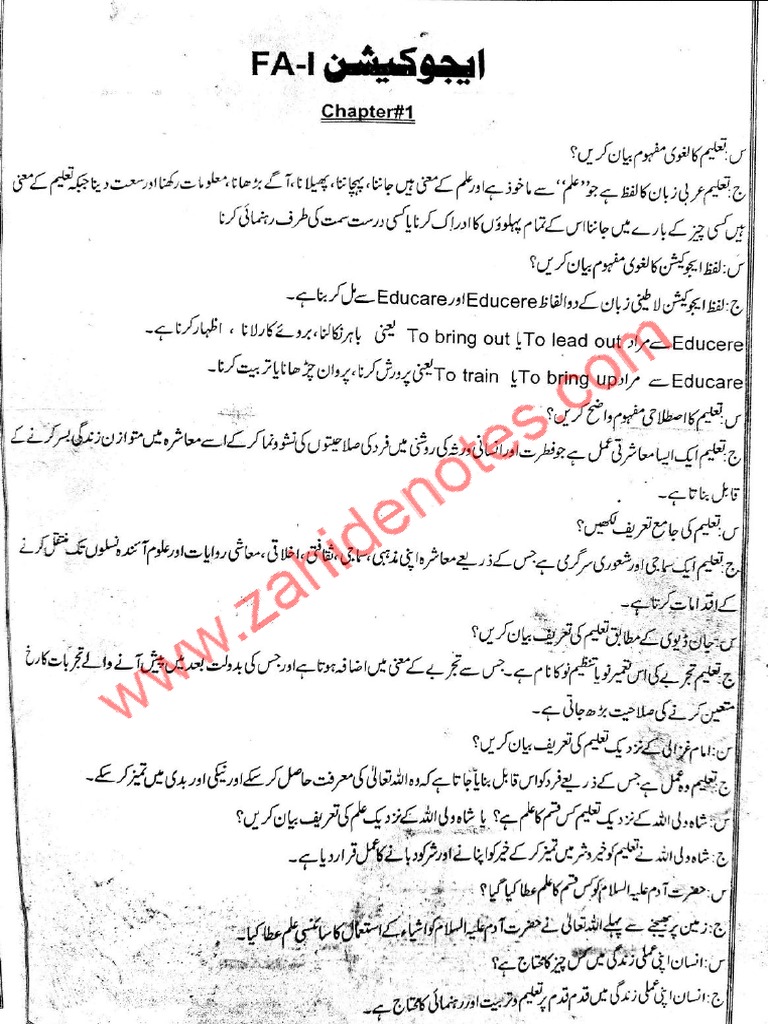 ایجوکیشن FA-I
Chapter#1
س: تعلیم کا لغوی مفہوم بیان کریں؟
ج: تعلیم عربی زبان کا لفظ ہے جو ”علم“ سے ماخوذ ہے اور علم کے معنی ہیں جاننا، پہچاننا، پھیلانا، آگے بڑھانا، معلومات رکھنا اور سعت دینا جبکہ تعلیم کے معنی
ہیں کسی چیز کے بارے میں جاننا اس کے تمام پہلوؤں کا ادراک کرنا یا کسی درست سمت کی طرف رہنمائی کرنا
س: لفظ ایجوکیشن کا لغوی مفہوم بیان کریں؟
ج: لفظ ایجوکیشن لاطینی زبان کے دو الفاظ Educere اور Educare سے مل کر بنا ہے۔
Educere سے مراد To lead out یا To bring out یعنی باہر نکالنا، بروئے کار لانا ، اظہار کرنا ہے۔
Educare سے مراد To bring up یا To train یعنی پرورش کرنا، پروان چڑھانا یا تربیت کرنا۔
س: تعلیم کا اصطلاحی مفہوم واضح کریں؟
ج: تعلیم ایک ایسا معاشرتی عمل ہے جو فطرت اور انسانی ورثہ کی روشنی میں فرد کی صلاحیتوں کی نشوونما کر کے اسے معاشرہ میں متوازن زندگی بسر کرنے کے
قابل بناتا ہے۔
س: تعلیم کی جامع تعریف لکھیں؟
ج: تعلیم ایک سماجی اور شعوری سرگرمی ہے جس کے ذریعے معاشرہ اپنی مذہبی، سماجی، ثقافتی، اخلاقی، معاشی روایات اور علوم آئندہ نسلوں تک منتقل کرنے
کے اقدامات کرتا ہے۔
س: جان ڈیوی کے مطابق تعلیم کی تعریف بیان کریں؟
ج: تعلیم تجربے کی اس تعمیر نو یا تنظیم نو کا نام ہے۔ جس سے تجربے کے معنی میں اضافہ ہوتا ہے اور جس کی بدولت بعد میں پیش آنے والے تجربات کا رخ
متعین کرنے کی صلاحیت بڑھ جاتی ہے۔
س: امام غزالی کے نزدیک تعلیم کی تعریف بیان کریں؟
ج: تعلیم وہ عمل ہے جس کے ذریعے فرد کو اس قابل بنایا جاتا ہے کہ وہ اللہ تعالیٰ کی معرفت حاصل کر سکے اور نیکی اور بدی میں تمیز کر سکے۔
س: شاہ ولی اللہ کے نزدیک تعلیم کس قسم کا علم ہے؟ یا شاہ ولی اللہ کے نزدیک علم کی تعریف بیان کریں؟
ج: شاہ ولی اللہ نے تعلیم کو خیر و شر میں تمیز کر کے خیر کو اپنانے اور شر کو دبانے کا عمل قرار دیا ہے۔
س: حضرت آدم علیہ السلام کو کس قسم کا علم عطا کیا گیا؟
ج: زمین پر بھیجنے سے پہلے اللہ تعالیٰ نے حضرت آدم علیہ السلام کو اشیاء کے استعمال کا سائنسی علم عطا کیا۔
س: انسان اپنی عملی زندگی میں کس چیز کا محتاج ہے؟
ج: انسان اپنی عملی زندگی میں قدم قدم پر تعلیم و تربیت اور رہنمائی کا محتاج ہے۔
www.zahidenotes.com